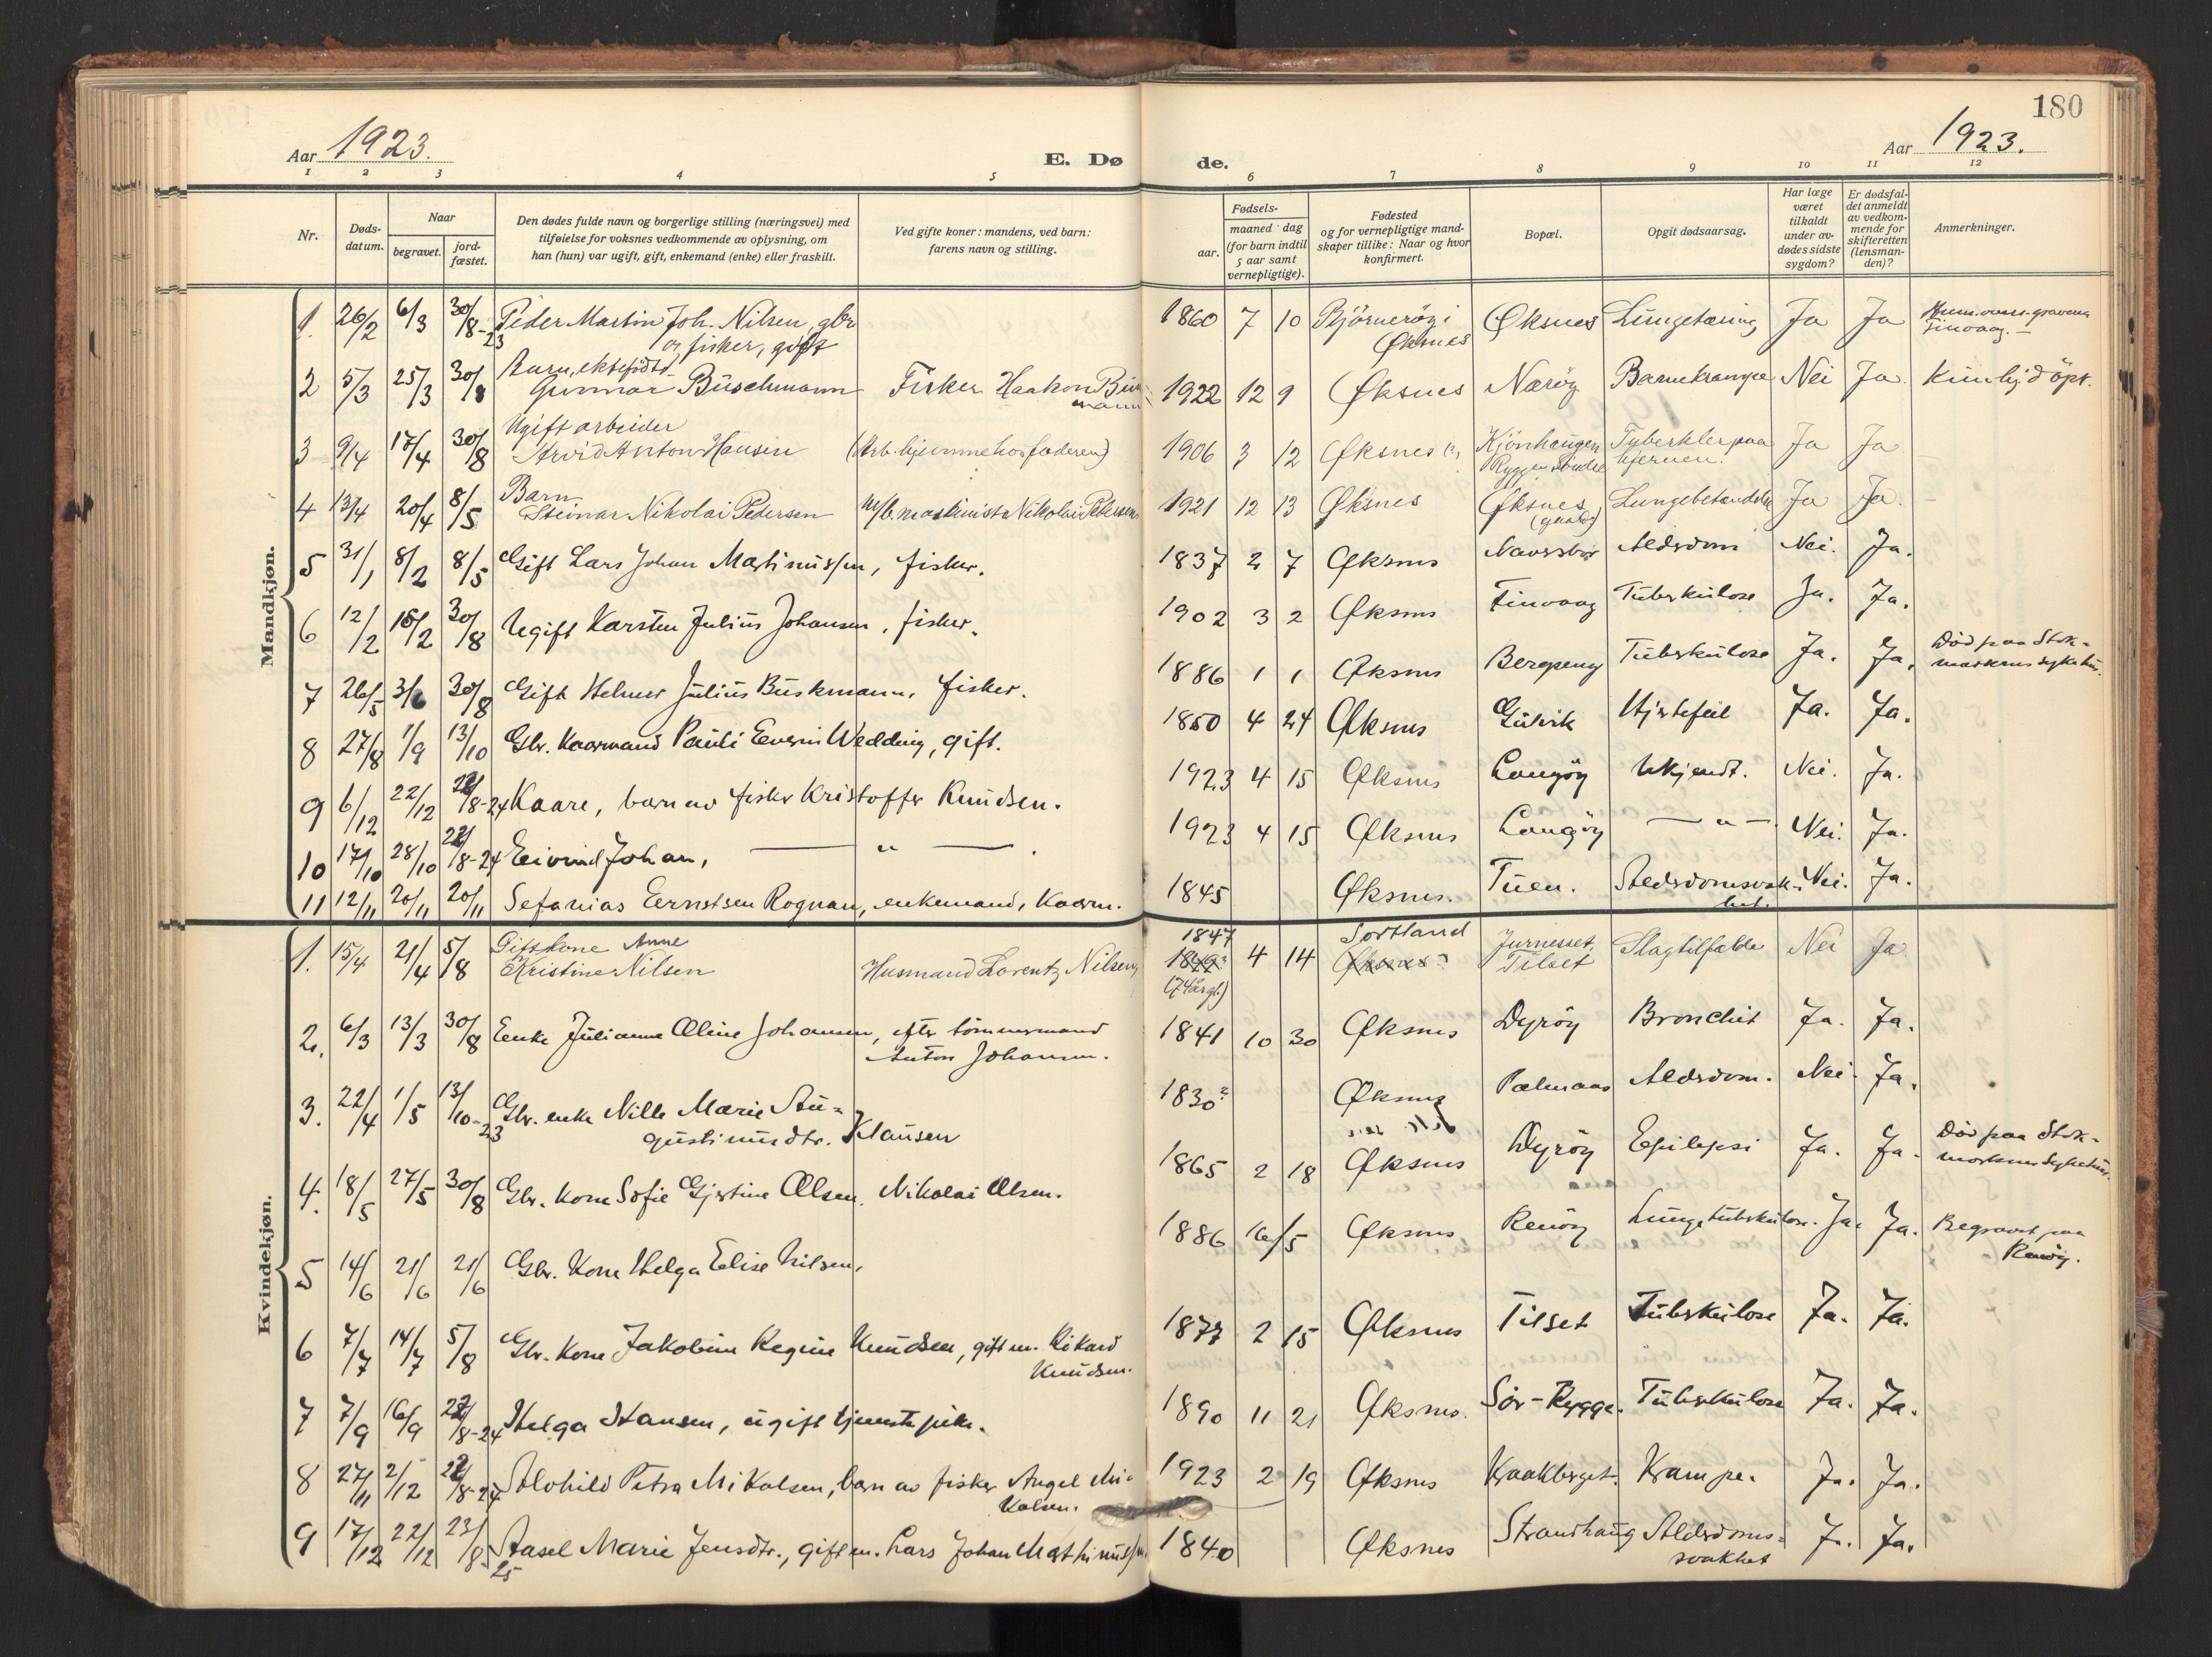 180
Aar 1923.
E. Dø
de.
Aar 1923.
1 2 3 4 5 6 7 8 9 10 11 12
Nr.
Døds-
datum.
Naar
begravet.
jord-
fæstet.
Den dødes fulde navn og borgerlige stilling (næringsvei) med
tilføielse for voksnes vedkommende av oplysning, om
han (hun) var ugift, gift, enkemand (enke) eller fraskilt.
Ved gifte koner: mandens, ved barn:
farens navn og stilling.
Fødsels-
aar.
maaned dag
(for barn indtil
5 aar samt
vernepligtige).
Fødested
og for vernepligtige mand-
skaper tillike: Naar og hvor
konfirmert.
Bopæl.
Opgit dødsaarsag.
Har læge
været
tilkaldt
under av-
dødes sidste
sygdom?
Er dødsfal-
det anmeldt
av vedkom-
mende for
skifteretten
(lensman-
den)?
Anmerkninger.
Mandkjøn.
1. 26/2 6/3 30/8-23 Peder Martin Joh. Nilsen, gbr
og fisker, gift
1860 7 10 Bjørnerøy i
Øksnes
Øksnes Lungetæring Ja Ja
Tinvaag.
2 5/3 25/3 30/8 Barn, ektefødt
Gunnar Buschmann Fisker Haakon Bus
mann
1922 12 9 Øksnes Nærøy Barnekrampe Nei Ja
3 9/4 17/4 30/8 Ugift arbeider
Arvid Anton Hansen (Arb. hjemme hos faderen)
1906 3 12 Øksnes (?) Kjönhaugen
Ryggen Söndre
Tyberkler paa
hjernen. Ja Ja
4 13/4 20/4 8/5 Barn
Steinar Nikolai Pedersen m/b. maskinist Nikolai Pedersen
1921 12 13 Øksnes Øksnes
(gaard)
Lungebetændelse Ja Ja.
5 31/1 8/2 8/5 Gift Lars Johan Martinussen, fisker.
1837 2 7 Øksnes Alderdom Nei. Ja.
6 12/2 18/2 30/8 Ugift Karsten Julius Johansen, fisker.
1902 3 2 Øksnes Tinvaag Tuberkulose Ja. Ja.
7 26/5 3/6 30/8 Gift Helmer Julius Buskmann, fisker.
1886 1 1 Øksnes Bergpeng Tuberkulose Ja. Ja. Död paa Stok-
marknes sykehus.
8 27/8 1/9 13/10 Gbr. Kaarmand Pauli Evensen Wedding, gift.
1850 4 24 Øksnes Gulvik Hjertefeil Ja. Ja.
9 6/12 22/12 22/8-24 Kaare, barn av fisker Kristoffer Knudsen.
1923 4 15 Øksnes Langöy Ukjendt. Nei. Ja.
10 17/10 28/10 22/8-24 Eivind Johan, — " — .
1923 4 15 Øksnes Langöy — " — . Nei. Ja.
11 12/11 20/11 20/11 Sefanias Ernstsen Rognan, enkemand, Kaarm.
1845 Øksnes. Tuen. Alderdomsvak-
het. Nei. Ja.
Kvindekjøn.
1. 15/4 21/4 5/8 Gift kone Anne
Kristine Nilsen Husmand Lorentz Nilsen
1847
1849?
(74 årgl.)
4 14 Sortland
Øksnes?
Jurnesset,
Tilset
Slagtilfælde Nei Ja
2. 6/3 13/3 30/8 Enke Julianne Oline Johansen, efter tömmermand
Anton Johansen.
1841 10 30 Øksnes Dyröy Bronchit Ja. Ja.
3. 22/4 1/5 13/10-23 Gbr. enke Nille Marie Au-
gustinusdtr. Klausen
1830? Øksnes Alderdom. Nei. Ja.
4. 18/5 27/5 30/8 Gbr. Kone Sofie Gjertine Olsen, Nikolai Olsen.
1865 2 18 Øksnes Dyröy Epilepsi Ja. Ja. Död paa Stok-
marknes sykehus.
5 14/6 21/6 21/6 Gbr. Kone Helga Elise Nilsen.
1886 16/5 Øksnes Renöy Lungetuberkulose. Ja. Ja. Begravet paa
Renöy.
6 7/7 14/7 5/8 Gbr. Kone Jakobine Regine Knudsen, gift m. Rikard
Knudsen.
1877 2 15 Øksnes Tilset Tuberkulose Ja. Ja.
7 7/9 16/9 22/8-24 Helga Hansen, ugift tjenestepike.
1890 11 21 Øksnes. Sör-Rygge. Tuberkulose Ja. Ja.
8 27/11 2/12 22/8-24 Alohild Petra Mikalsen, barn av fisker Angel Mi-
kalsen.
1923 2 19 Øksnes Kraakberget. Krampe. Ja. Ja.
9 17/12 22/12 23/8-25 Aasel Marie Jensdtr., gift m. Lars Johan Marthinussen
1840 Øksnes Strandhaug Alderdoms-
svakhet Ja. Ja.